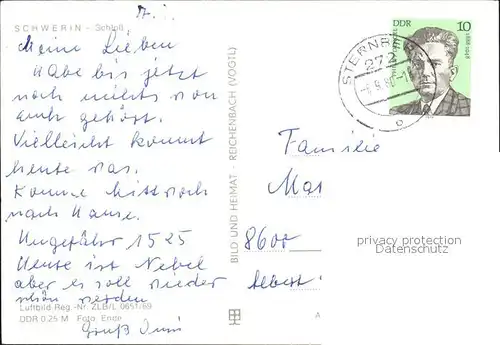 SCHWERIN - Schloß
Meine Lieben
Habe bis jetzt
noch nichts von
euch gehört.
Vielleicht kommt
heute was.
Komme Mittwoch
nach Hause.
Ungefähr 1525
Heute ist Nebel
aber es soll wieder
schön werden
Gruß
Luftbild Reg.-Nr. ZLB/L 0651/69
DDR 0,25 M Foto: Ende
BILD UND HEIMAT - REICHENBACH (VOGTL)
DDR 10
1888-1948
STERNBERG
272
Familie
Mat
8600
Albert
A
privacy protection
Datenschutz